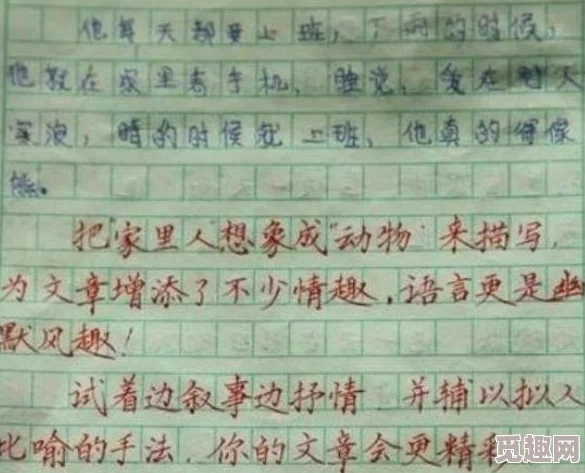 他每天都要上班，下雨的时候，
他就在家里看手机，睡觉，
，晴的时候就上班，他真的好像
熊。
把“家里人”想象成“动物”来描写，
为文章增添了不少情趣，语言更是幽
默风趣！
试着边叙事边抒情，并辅以拟人
比喻的手法，你的文章会更精彩
觅趣网